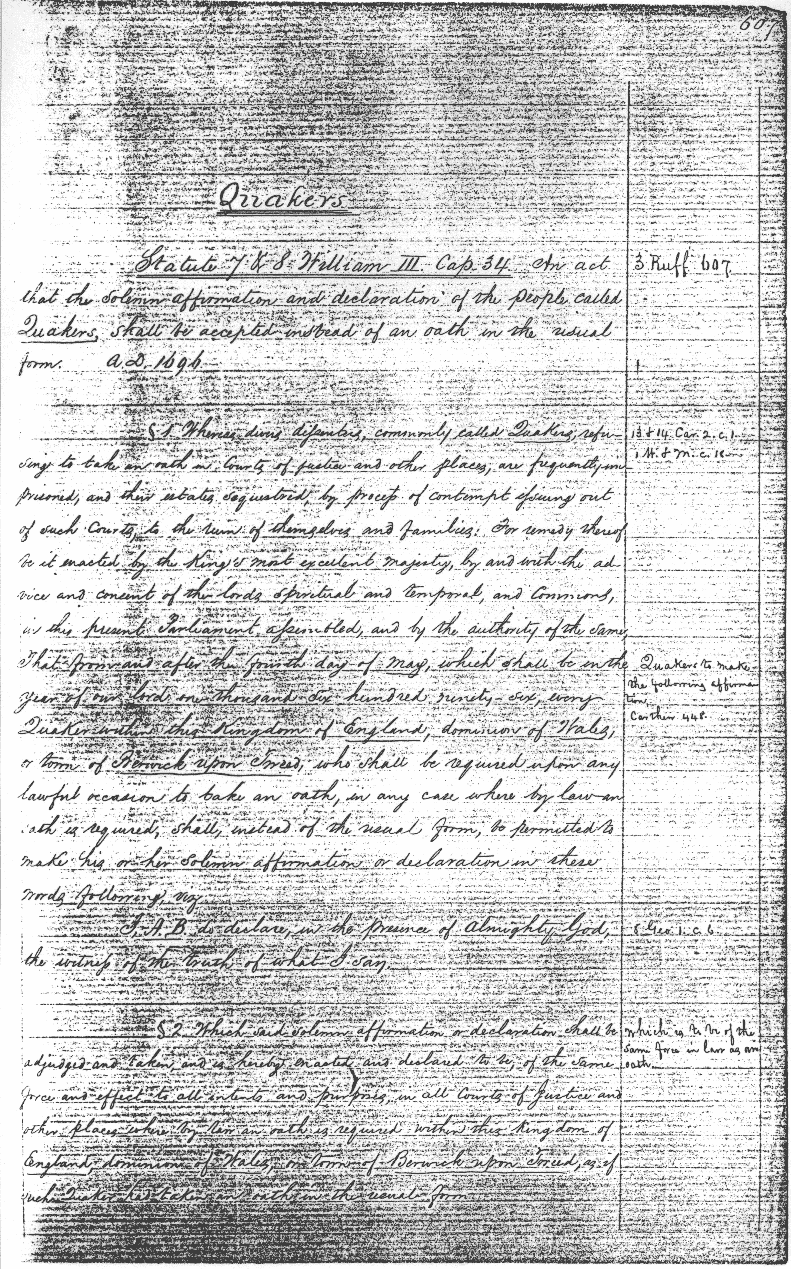 607
Quakers
Statute 7 & 8 William III. Cap. 34. An act
3 Ruff 607.
that the solemn affirmation and declaration of the people called
Quakers, shall be accepted instead of an oath in the usual
form. A.D. 1696
§ 1 Whereas divers dissenters, commonly called Quakers, refu-
13 & 14 Car. 2. c. 1.
sing to take an oath in Courts of justice and other places, are frequently im
1 W. & M. c. 18.
prisoned, and their estates sequestred, by process of contempt issuing out
of such Courts, to the ruin of themselves and families: For remedy thereof
be it enacted by the King's most excellent majesty, by and with the ad
vice and consent of the lords spiritual and temporal, and Commons,
in this present Parliament assembled, and by the authority of the same,
That from and after the fourth day of May, which shall be in the
Quakers to make
the following affirma
tion,
Carthew 448.
year of our lord one thousand six hundred ninety-six, every
Quaker within this Kingdom of England, dominion of Wales,
or town of Berwick upon Tweed, who shall be required upon any
lawful occasion to take an oath, in any case where by law an
oath is required, shall, instead of the usual form, be permitted to
make his or her solemn affirmation or declaration in these
words following, viz.
I. A. B. do declare, in the presence of Almighty God,
8 Geo 1. c. 6.
the witness of the truth of what I say.
§ 2. Which said solemn affirmation or declaration shall be
which is to be of the
same force in law as an
oath.
adjudged and taken, and is hereby enacted and declared to be, of the same
force and effect to all intents and purposes, in all Courts of Justice and
other places where by law an oath is required within this Kingdom of
England, dominion of Wales, or town of Berwick upon Tweed, as if
such Quaker had taken an oath in the usual form